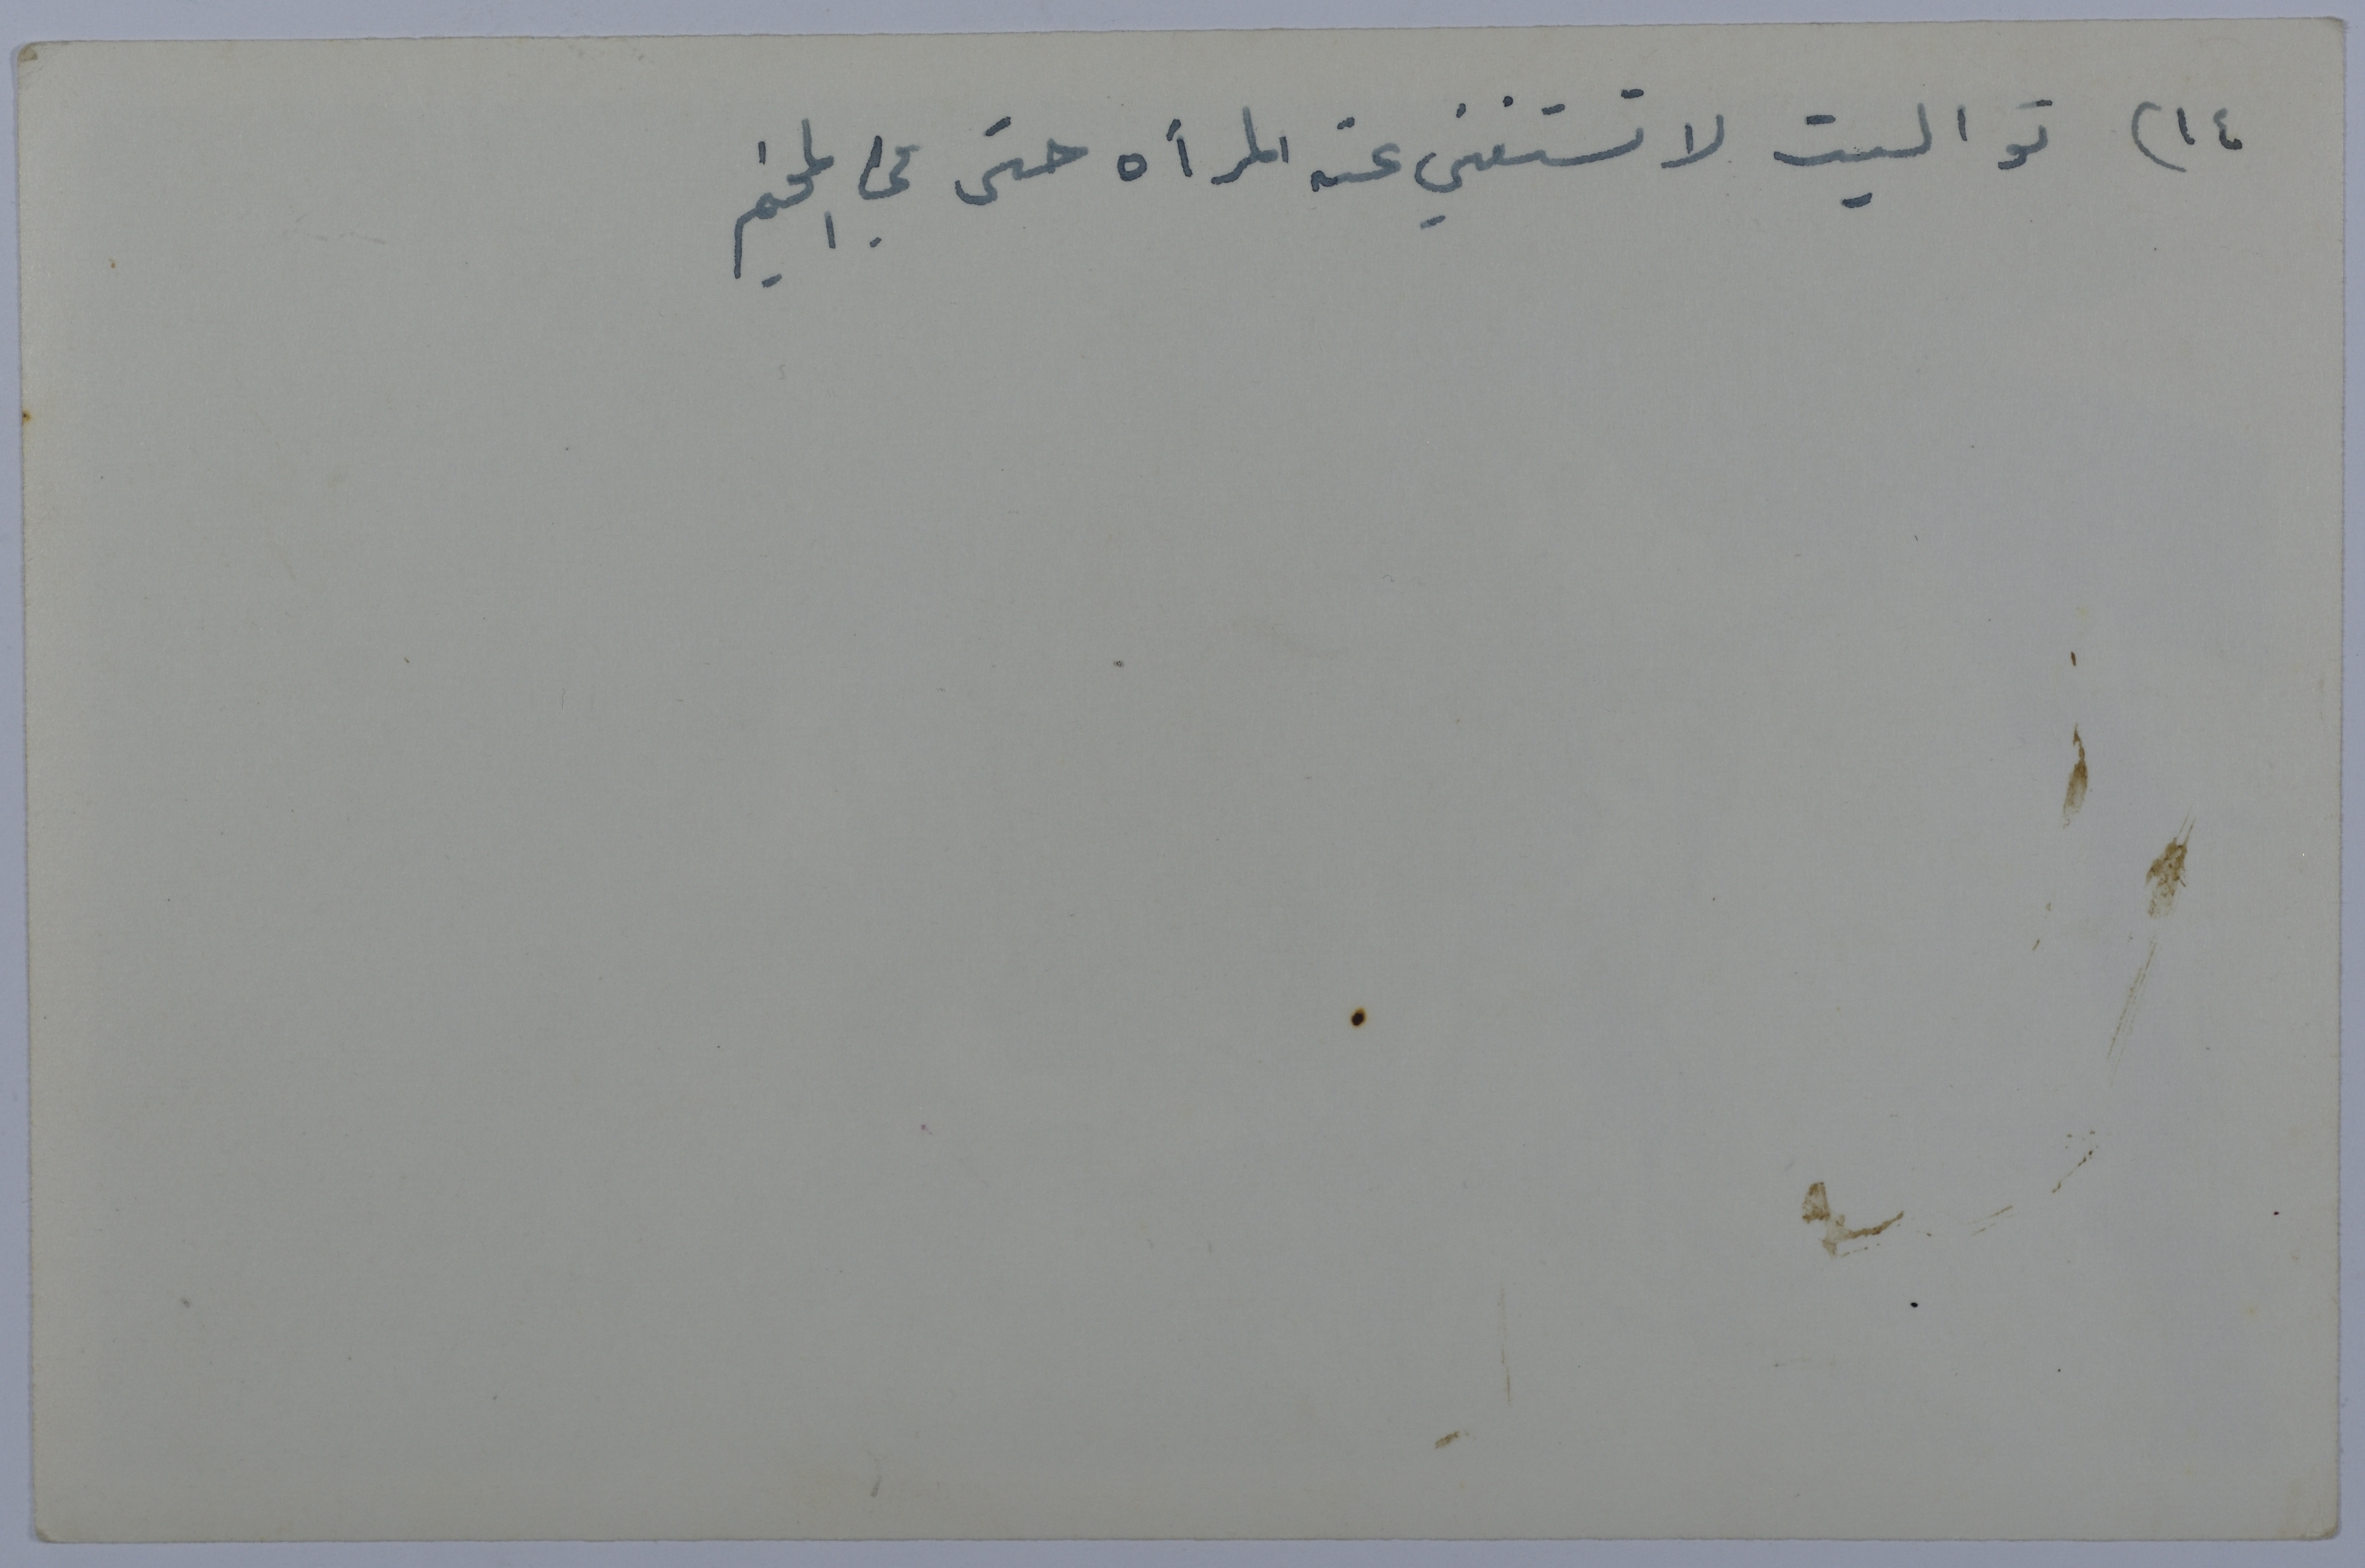 ١٤) تواليت لا تستغني عنه المرأه حتى في المخيم